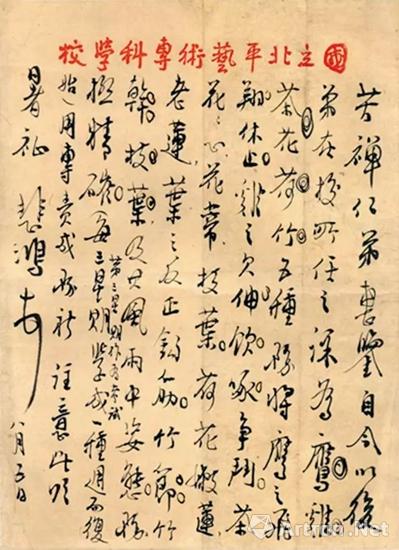 國立北平藝術專科學校
苦禪仁弟惠鑒自今以後
弟在校所任之課為鷹雞
茶花荷竹五種務將鷹之飛
翔休止雞之欠伸飲啄爭鬥茶
花之心花蒂枝葉荷花嫩蓮
老蓮葉之反正鈎筋竹節竹
幹枝葉及其風雨中姿態務
極精確每三星期學成一種週而復
第三星期作為考試
始用專責成務祈注意此頌
暑祉 悲鴻
八月五日
Artron.Net